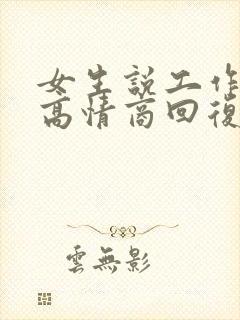 女生説工作
高情商回復
雲無影